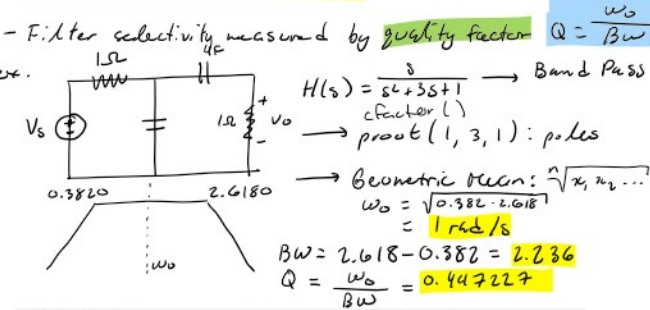 - Filter selectivity measured by quality factor Q = ω₀ / BW
ex.
1Ω
1F
Vs
1Ω
+
Vo
-
H(s) = s / (s²+3s+1) → Band Pass
cfactor()
→ proot(1, 3, 1) : poles
→ Geometric Mean: ⁿ√x₁ x₂ ...
ω₀ = √0.382 · 2.618
= 1 rad/s
0.3820
2.6180
ω₀
BW = 2.618 - 0.382 = 2.236
Q = ω₀ / BW = 0.447227